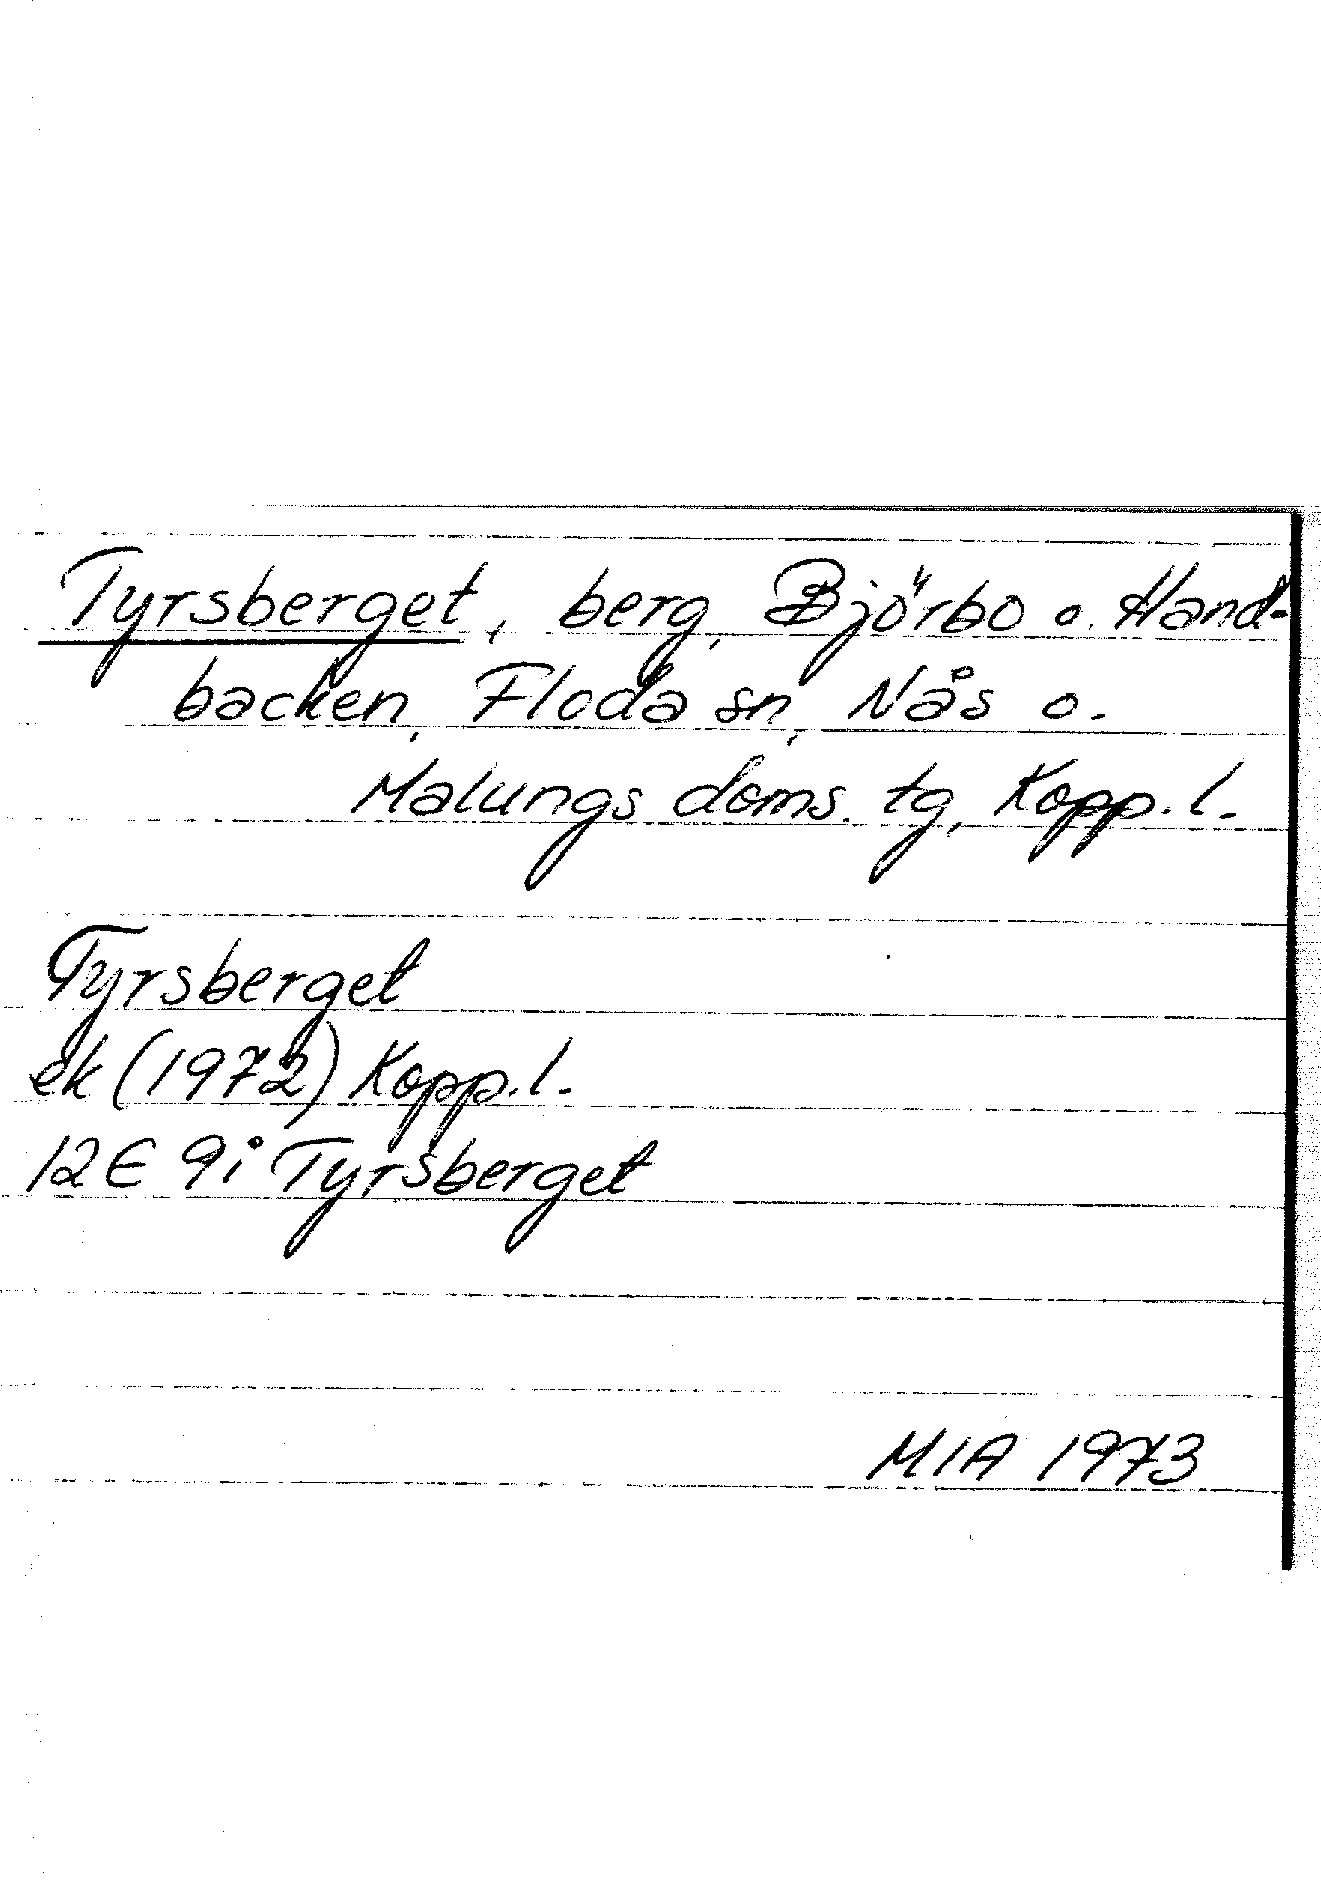 Tyrsberget, berg, Björbo o. Hand-
backen, Floda sn, Nås o.
Malungs doms. tg, Kopp. l.
Tyrsberget
ek (1972) Kopp. l.
12E 9i Tyrsberget
MIA 1973